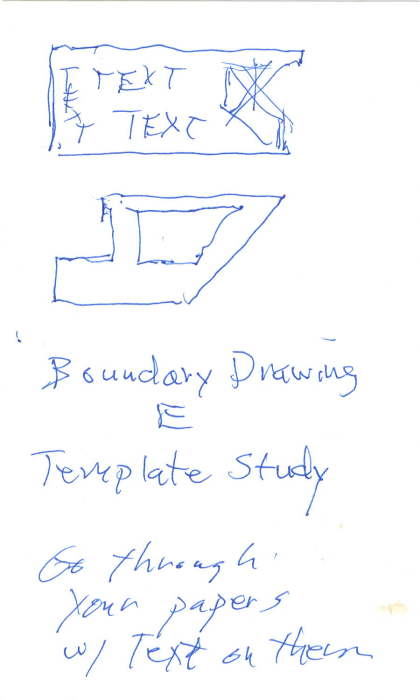 TEXT
TEXT
TEXT
Boundary Drawing
E
Template Study
Go through
your papers
w/ Text on them